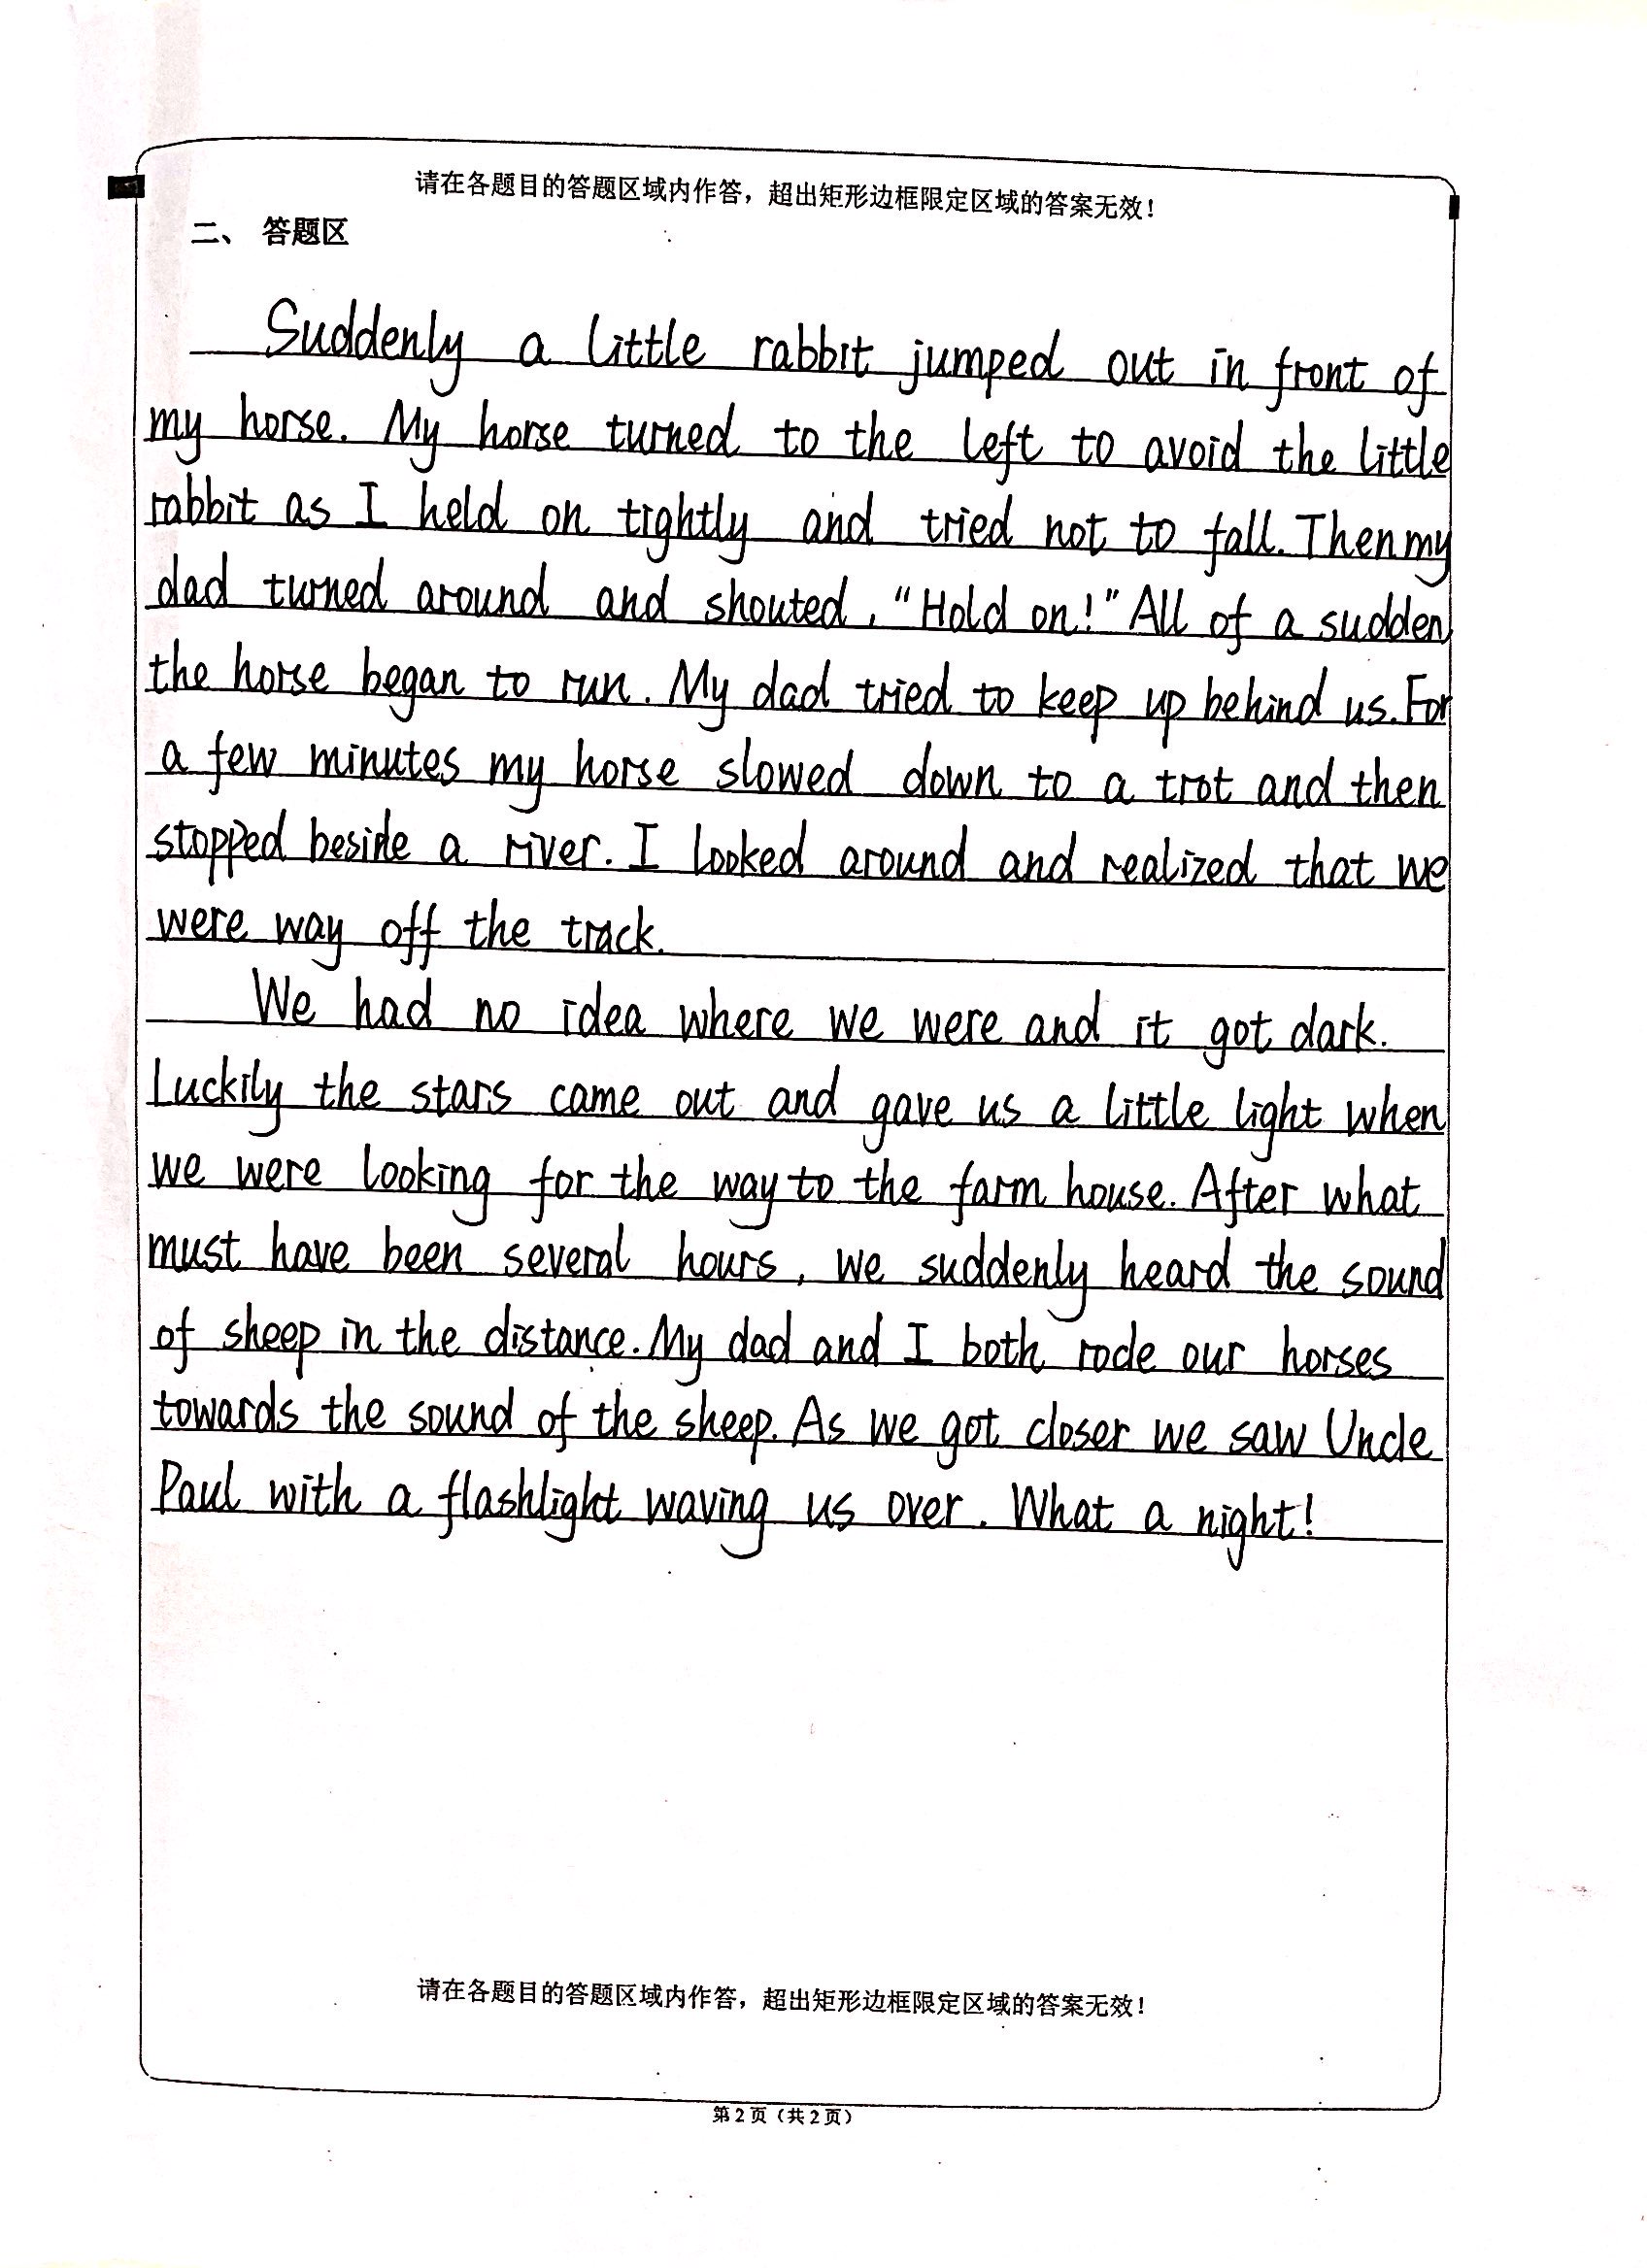 请在各题目的答题区域内作答，超出矩形边框限定区域的答案无效！
二、 答题区
Suddenly a little rabbit jumped out in front of
my horse. My horse turned to the left to avoid the little
rabbit as I held on tightly and tried not to fall. Then my
dad turned around and shouted, "Hold on!" All of a sudden
the horse began to run. My dad tried to keep up behind us. For
a few minutes my horse slowed down to a trot and then
stopped beside a river. I looked around and realized that we
were way off the track.
We had no idea where we were and it got dark.
Luckily the stars came out and gave us a little light when
we were looking for the way to the farm house. After what
must have been several hours, we suddenly heard the sound
of sheep in the distance. My dad and I both rode our horses
towards the sound of the sheep. As we got closer we saw Uncle
Paul with a flashlight waving us over. What a night!
请在各题目的答题区域内作答，超出矩形边框限定区域的答案无效！
第2页（共2页）